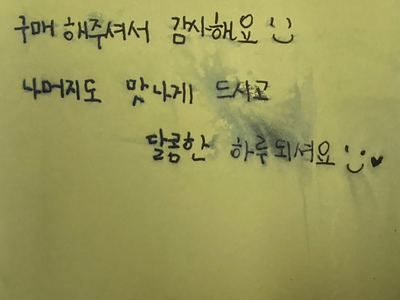 구매 해주셔서 감사해요 :)
나머지도 맛나게 드시고
달콤한 하루 되셔요 :) ♥